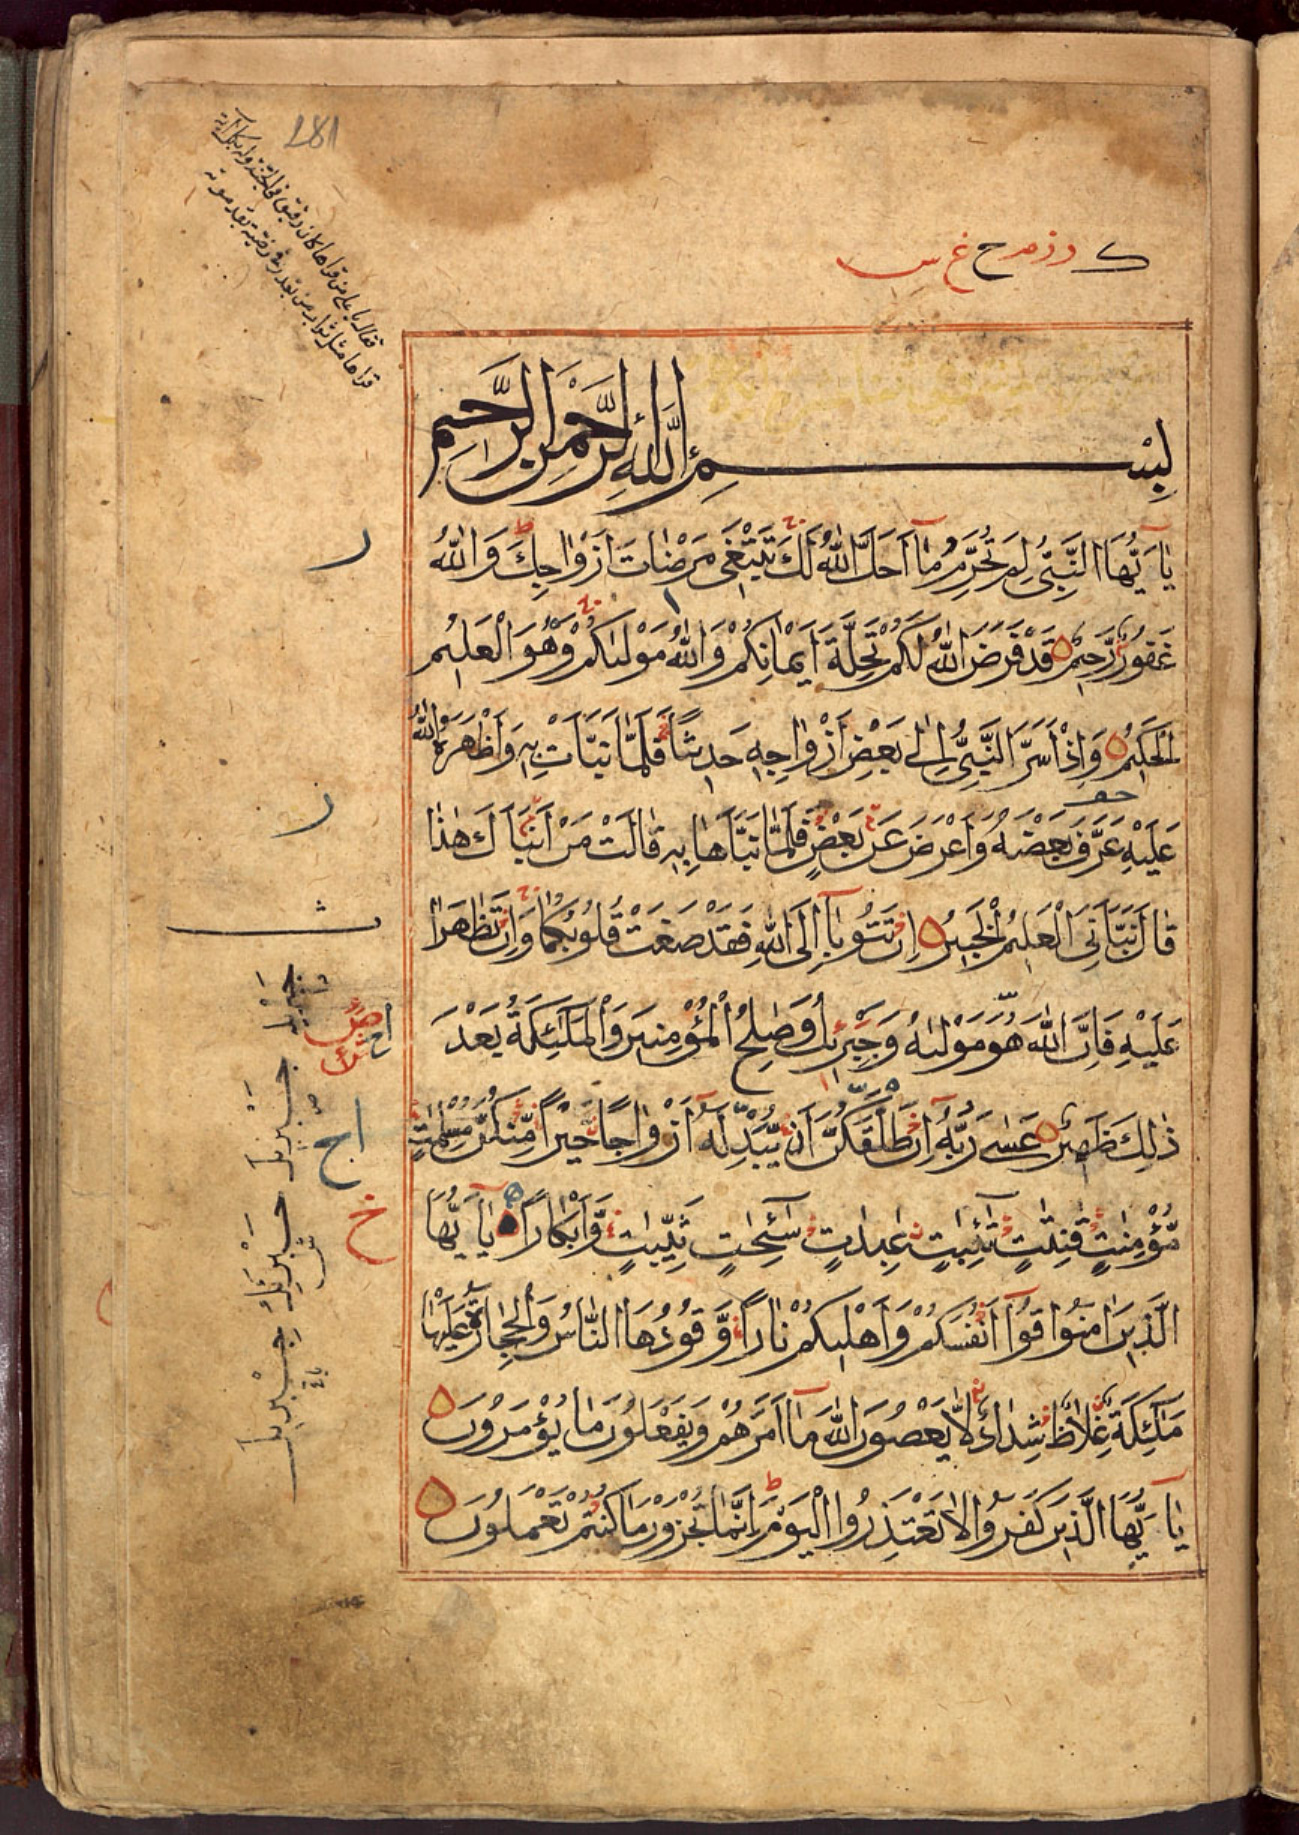 281
بِسْمِ اللّٰهِ الرَّحْمٰنِ الرَّحِيمِ
يٰاَ يُّهَا النَّبِيُّ لِمَ تُحَرِّمُ مٰآ اَحَلَّ اللّٰهُ لَكَ تَبْتَغِي مَرْضٰاتَ اَزْوٰاجِكَ وَاللّٰهُ
غَفُورٌ رَّحِيمٌ قَدْ فَرَضَ اللّٰهُ لَكُمْ تَحِلَّةَ اَيْمٰانِكُمْ وَاللّٰهُ مَوْلٰىكُمْ وَهُوَ الْعَلِيمُ
الْحَكِيمُ وَاِذْ اَسَرَّ النَّبِيُّ اِلٰى بَعْضِ اَزْوٰاجِهِ حَدِيثًا فَلَمّٰا نَبَّاَتْ بِهِ وَاَظْهَرَهُ اللّٰهُ
عَلَيْهِ عَرَّفَ بَعْضَهُ وَاَعْرَضَ عَنْ بَعْضٍ فَلَمّٰا نَبَّاَهٰا بِهِ قٰالَتْ مَنْ اَنْبَاَكَ هٰذٰا
قٰالَ نَبَّاَنِيَ الْعَلِيمُ الْخَبِيرُ اِنْ تَتُوبٰآ اِلَى اللّٰهِ فَقَدْ صَغَتْ قُلُوبُكُمٰا وَاِنْ تَظٰاهَرٰا
عَلَيْهِ فَاِنَّ اللّٰهَ هُوَ مَوْلٰىهُ وَجِبْرِيلُ وَصٰلِحُ الْمُؤْمِنِينَ وَالْمَلٰٓئِكَةُ بَعْدَ
ذٰلِكَ ظَهِيرٌ عَسٰى رَبُّهُ اِنْ طَلَّقَكُنَّ اَنْ يُّبْدِلَهُ اَزْوٰاجًا خَيْرًا مِّنْكُنَّ مُسْلِمٰتٍ
مُّؤْمِنٰتٍ قٰنِتٰتٍ تٰٓئِبٰتٍ عٰبِدٰاتٍ سٰٓئِحٰتٍ ثَيِّبٰتٍ وَّاَبْكٰارًا يٰاَ يُّهَا
الَّذِينَ اٰمَنُوا قُوٓا اَنْفُسَكُمْ وَاَهْلِيكُمْ نٰارًا وَّقُودُهَا النّٰاسُ وَالْحِجٰارَةُ عَلَيْهٰا
مَلٰٓئِكَةٌ غِلٰاظٌ شِدٰادٌ لّٰا يَعْصُونَ اللّٰهَ مٰآ اَمَرَهُمْ وَيَفْعَلُونَ مٰا يُؤْمَرُونَ
يٰاَ يُّهَا الَّذِينَ كَفَرُوا لٰا تَعْتَذِرُوا الْيَوْمَ اِنَّمٰا تُجْزَوْنَ مٰا كُنْتُمْ تَعْمَلُونَ